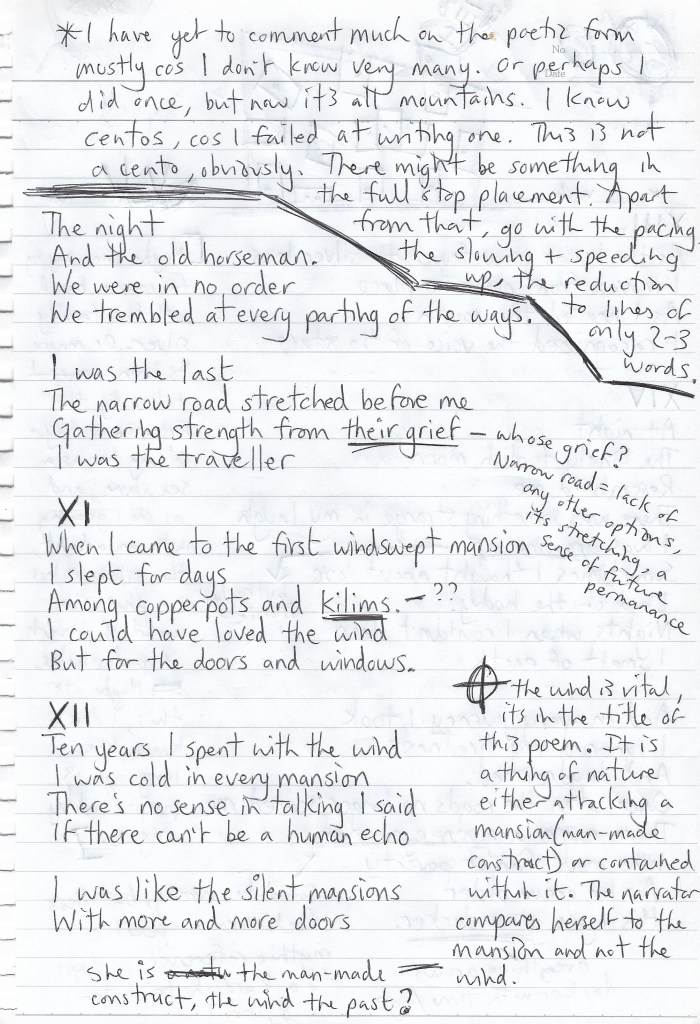 *I have yet to comment much on the poetic form
mostly cos I don't know very many. Or perhaps I
did once, but now it's all mountains. I know
centos, cos I failed at writing one. This is not
a cento, obviously. There might be something in
the full stop placement. Apart
from that, go with the pacing
the slowing + speeding
up, the reduction
to lines of
only 2-3
words.
The night
And the old horseman.
We were in no order
We trembled at every parting of the ways.
I was the last
The narrow road stretched before me
Gathering strength from their grief – whose grief?
I was the traveller
Narrow road = lack of
any other options,
its stretching, a
sense of future
permanance
XI
When I came to the first windswept mansion
I slept for days
Among copperpots and kilims. – ??
I could have loved the wind
But for the doors and windows.
XII
Ten years I spent with the wind
I was cold in every mansion
There's no sense in talking I said
If there can't be a human echo
I was like the silent mansions
With more and more doors
the wind is vital,
its in the title of
this poem. It is
a thing of nature
either attacking a
mansion (man-made
construct) or contained
within it. The narrator
compares herself to the
mansion and not the
wind.
She is the man-made
construct, the wind the past?
No
Date